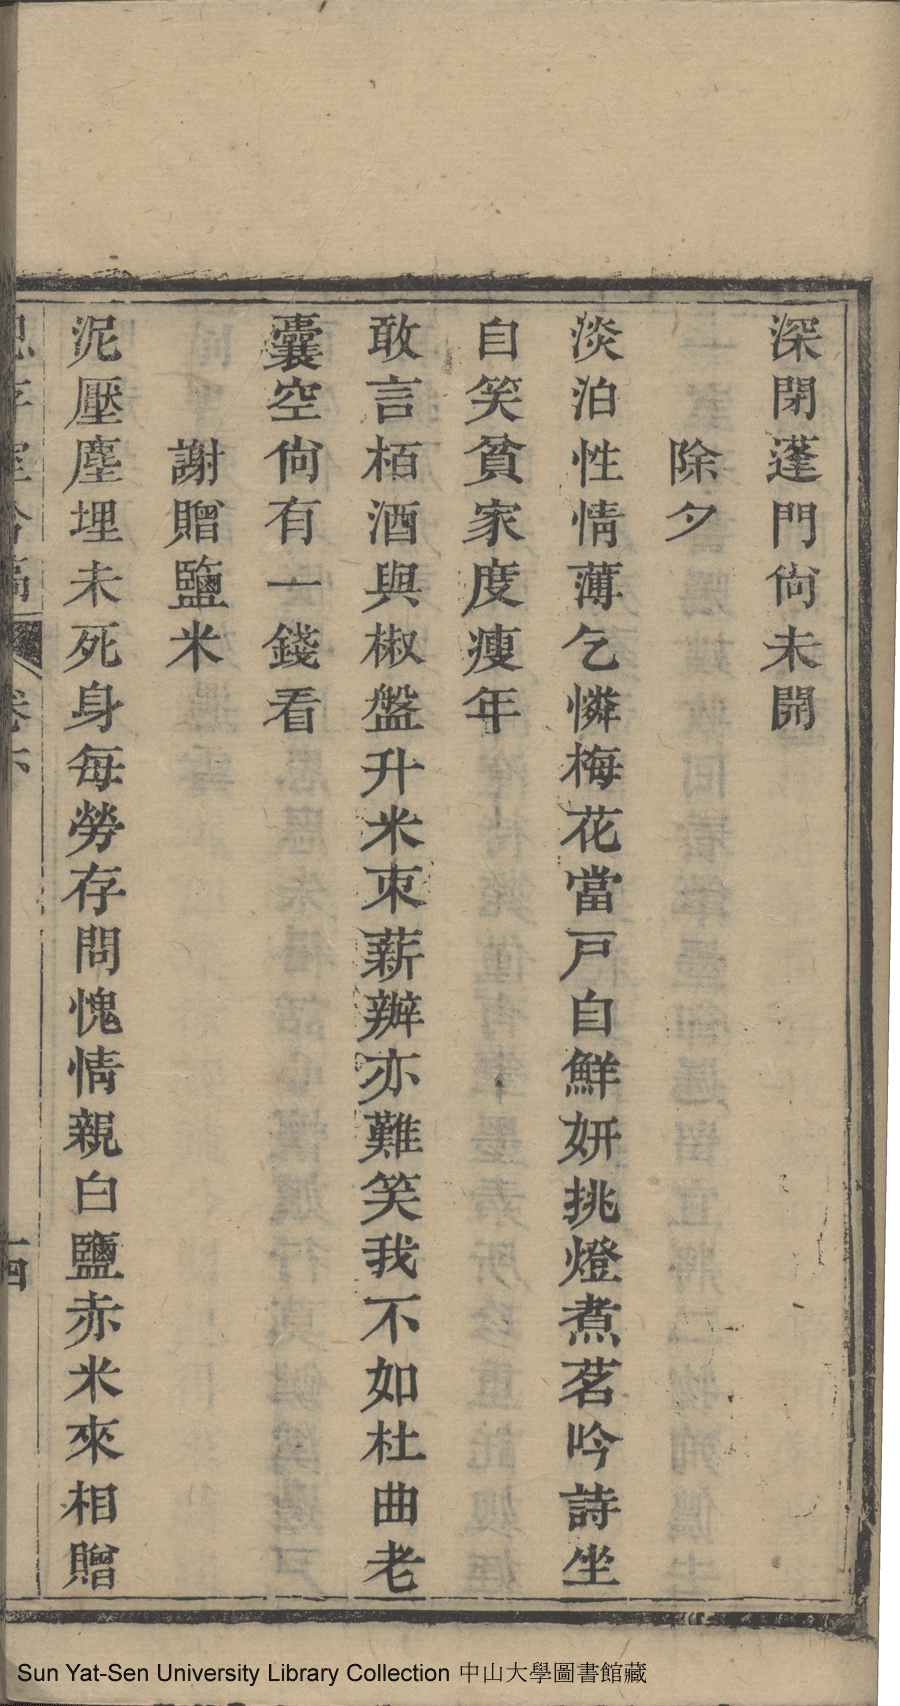 深閉蓬門尙未開
除夕
淡泊性情薄乞憐梅花當戸自鮮妍挑燈煮茗吟詩坐
自笑貧家度瘦年
敢言栢酒與椒盤升米束薪辦亦難笑我不如杜曲老
囊空尙有一錢看
謝贈鹽米
泥壓塵埋未死身每勞存問愧情親白鹽赤米來相贈
卷六
十四
Sun Yat-Sen University Library Collection 中山大學圖書館藏